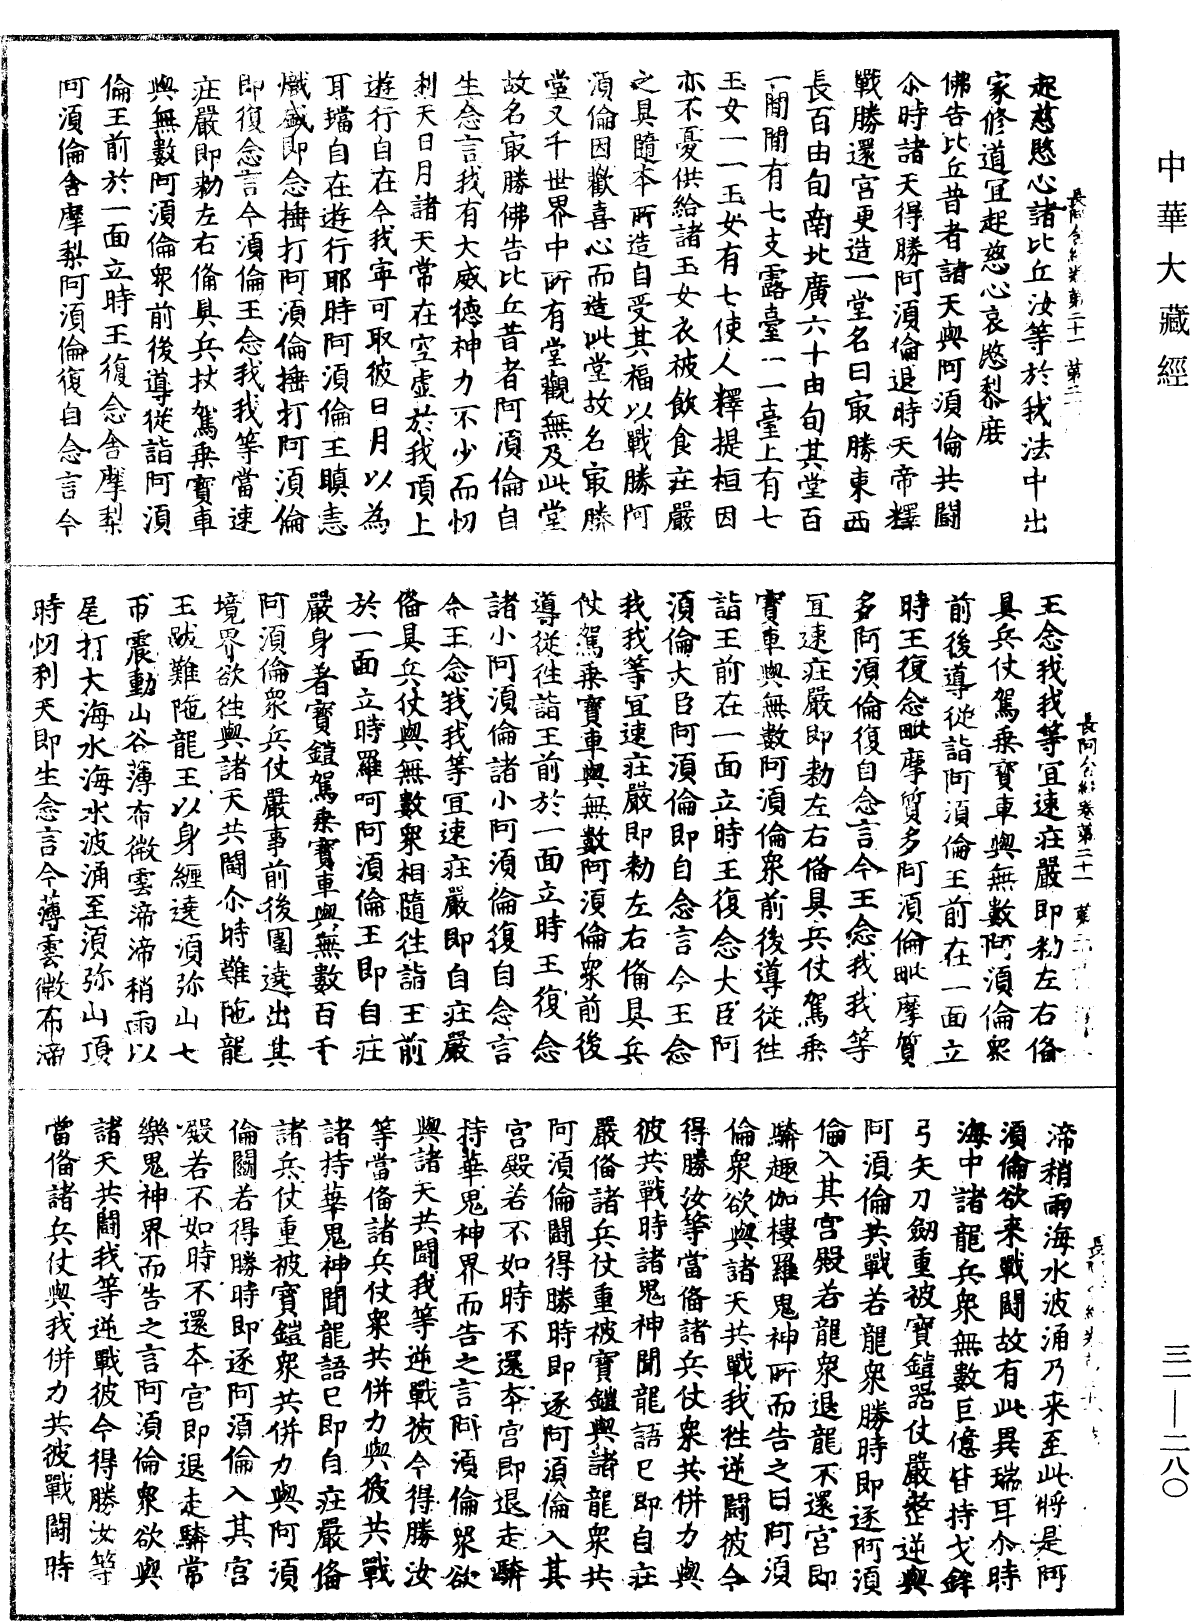 中華大藏經
三一—二八〇
起慈愍心諸比丘汝等於我法中出
家修道宜起慈心哀愍黎庶
佛告比丘昔者諸天與阿須倫共鬪
尒時諸天得勝阿須倫退時天帝釋
戰勝還宮更造一堂名曰㝡勝東西
長百由旬南北廣六十由旬其堂百
一閒閒有七支露臺一一臺上有七
玉女一一玉女有七使人釋提桓因
亦不憂供給諸玉女衣被飲食莊嚴
之具隨本所造自受其福以戰勝阿
須倫因歡喜心而造此堂故名㝡勝
堂又千世界中所有堂觀無及此堂
故名㝡勝佛告比丘昔者阿須倫自
生念言我有大威德神力不少而忉
利天日月諸天常在空虛於我頂上
遊行自在今我寧可取彼日月以為
耳璫自在遊行耶時阿須倫王瞋恚
熾盛即念捶打阿須倫捶打阿須倫
即復念言今須倫王念我我等當速
莊嚴即勑左右俻具兵杖駕乘寶車
與無數阿須倫衆前後導從詣阿須
倫王前於一面立時王復念舍摩梨
阿須倫舍摩梨阿須倫復自念言今
王念我我等宜速莊嚴即勑左右俻
具兵仗駕乘寶車與無數阿須倫衆
前後導從詣阿須倫王前在一面立
時王復念毗摩質多阿須倫毗摩質
多阿須倫復自念言今王念我我等
宜速莊嚴即勑左右俻具兵仗駕乘
寶車與無數阿須倫衆前後導從徃
詣王前在一面立時王復念大臣阿
須倫大臣阿須倫即自念言今王念
我我等宜速莊嚴即勑左右俻具兵
仗駕乘寶車與無數阿須倫衆前後
導從徃詣王前於一面立時王復念
諸小阿須倫諸小阿須倫復自念言
今王念我我等宜速莊嚴即自莊嚴
俻具兵仗與無數衆相隨徃詣王前
於一面立時羅呵阿須倫王即自莊
嚴身著寶鎧駕乘寶車與無數百千
阿須倫衆兵仗嚴事前後圍遶出其
境界欲徃與諸天共鬪尒時難陁龍
王跋難陁龍王以身纏遶須弥山七
帀震動山谷薄布微雲渧渧稍雨以
尾打大海水海水波涌至須弥山頂
時忉利天即生念言今薄雲微布渧
渧稍雨海水波涌乃来至此將是阿
須倫欲来戰鬪故有此異瑞耳尒時
海中諸龍兵衆無數巨億皆持戈鉾
弓矢刀劒重被寶鎧器仗嚴整逆與
阿須倫共戰若龍衆勝時即逐阿須
倫入其宮殿若龍衆退龍不還宮即
驎趣伽樓羅鬼神所而告之曰阿須
倫衆欲與諸天共戰我徃逆鬪彼今
得勝汝等當俻諸兵仗衆共併力與
彼共戰時諸鬼神聞龍語已即自莊
嚴俻諸兵仗重被寶鎧與諸龍衆共
阿須倫鬪得勝時即逐阿須倫入其
宮殿若不如時不還本宮即退走驎
持華鬼神界而告之言阿須倫衆欲
與諸天共鬪我等逆戰彼今得勝汝
等當俻諸兵仗衆共併力與彼共戰
諸持華鬼神聞龍語已即自莊嚴俻
諸兵仗重被寶鎧衆共併力與阿須
倫鬪若得勝時即逐阿須倫入其宮
殿若不如時不還本宮即退走驎常
樂鬼神界而告之言阿須倫衆欲與
諸天共鬪我等逆戰彼今得勝汝等
當俻諸兵仗與我併力共彼戰鬪時